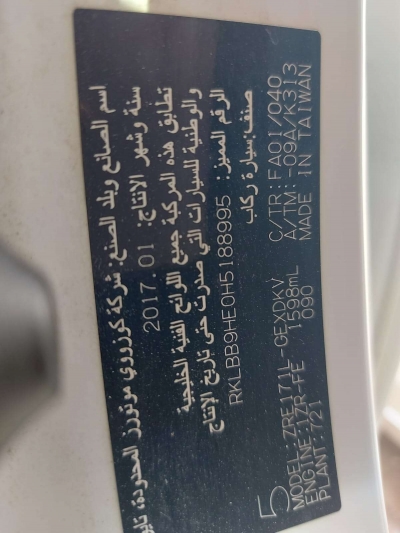 اسم الصانع وبلد الصنع: شركة كوزوي موتورز المحدودة، تايو
سنة وشهر الانتاج: 2017.01
تطابق هذه المركبة جميع اللوائح الفنية الخليجية
والوطنية للسيارات التي صدرت حتى تاريخ الإنتاج
الرقم المميز: RKLBB9HE0H5188995
صنف:سيارة ركاب
5
MODEL:ZRE171L-GEXDKV C/TR:FA01/040
ENGINE:1ZR-FE 1598mL A/TM:-09A/K313
PLANT:721 090 MADE IN TAIWAN